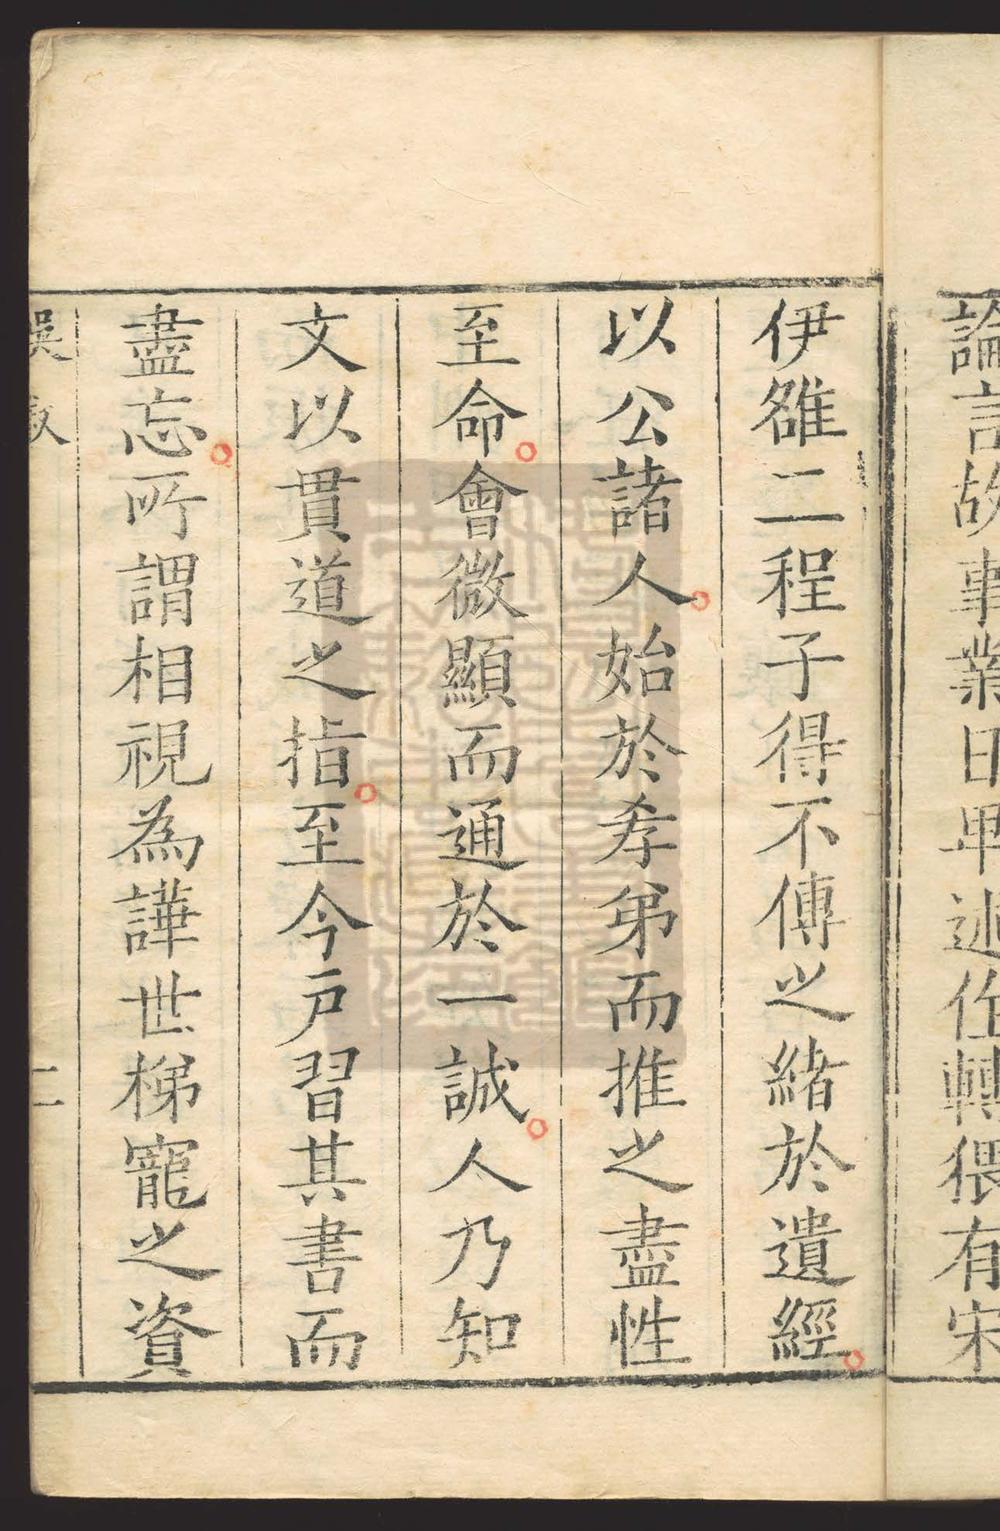 論言故事業日卑述作轉猥有宋
伊雒二程子得不傳之緒於遺經
以公諸人始於孝弟而推之盡性
至命會微顯而通於一誠人乃知
文以貫道之指至今戶習其書而
盡忘所謂相視為譁世梯寵之資
吳敘 二